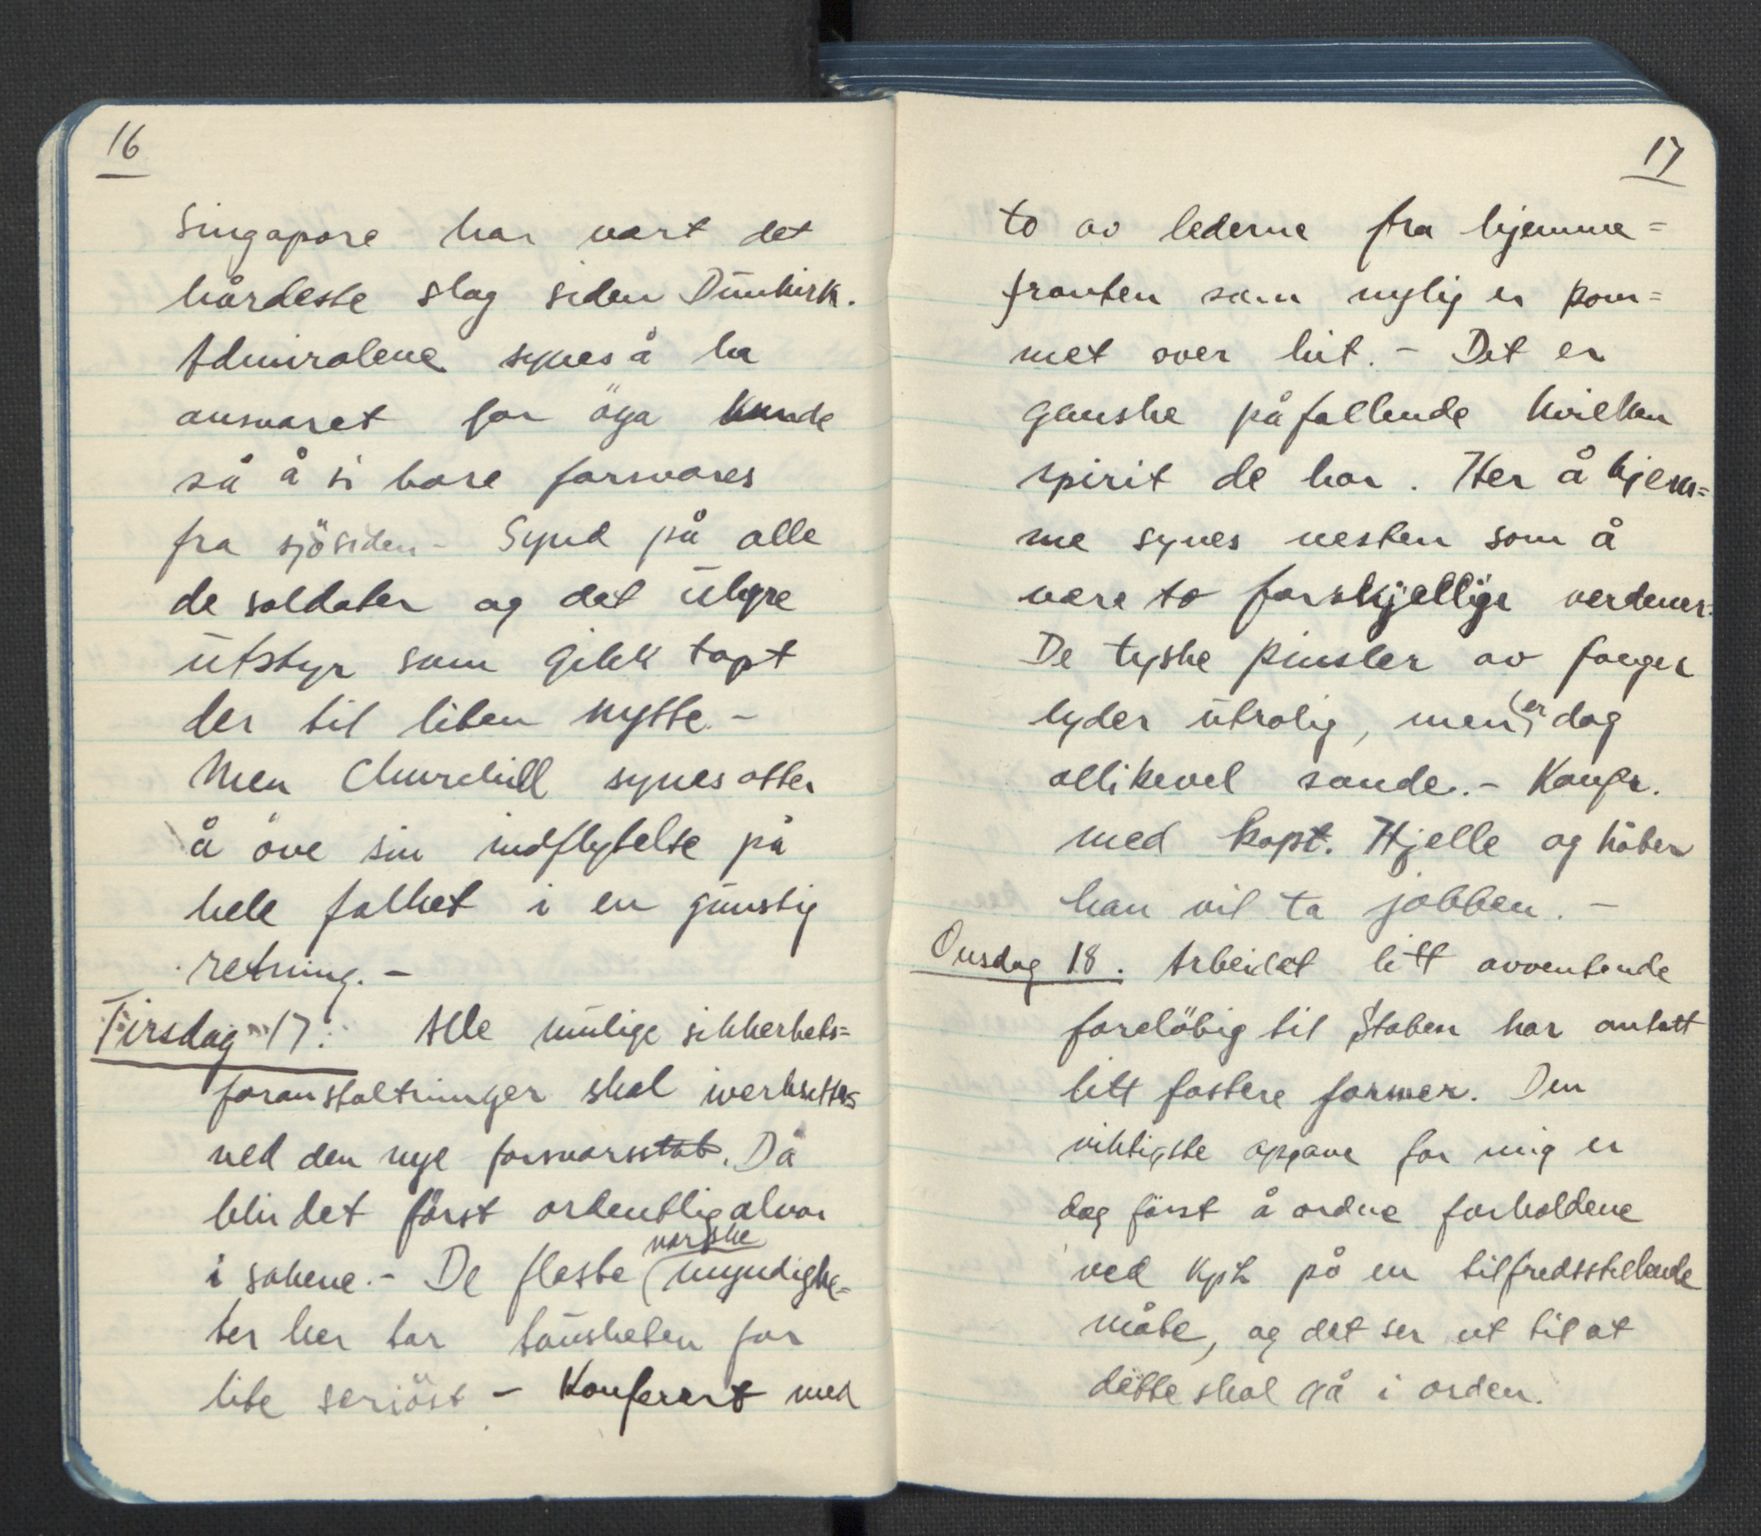 16
Singapore har vært det
hårdeste slag siden Dunkirk.
Admiralene synes å ha
ansvaret for öya kunde
så å si bare forsvares
fra sjösiden - Synd på alle
de soldater og det uhyre
utstyr som gikk tapt
der til liten nytte -
Men Churchill synes atter
å öve sin indflytelse på
hele folket i en gunstig
retning. -
Tirsdag 17. Alle mulige sikkerhets=
foranstaltninger skal iverksettes
ved den nye forsvarsstab. Då
blir det först ordentlig alvor
i sakene. - De fleste (norske
myndighe=
ter her tar tausheten for
lite seriöst - Konferert med
17
to av lederne fra hjemme=
fronten som nylig er kom=
met over hit. - Det er
ganske påfallende hvilken
spirit de har. Her å hjem=
me synes nesten som å
være to forskjellige verdener.
De tyske pinsler av fanger
lyder utrolig, men (er) dog
allikevel sande. - Konfr.
med kapt. Hjelle og håber
han vil ta jobben. -
Onsdag 18. Arbeidet litt avventende
foreløbig til Staben har antatt
litt fastere former. Den
viktigste opgave for mig er
dog först å ordne forholdene
ved Kpk på en tilfredsstillende
måte, og det ser ut til at
dette skal gå i orden.